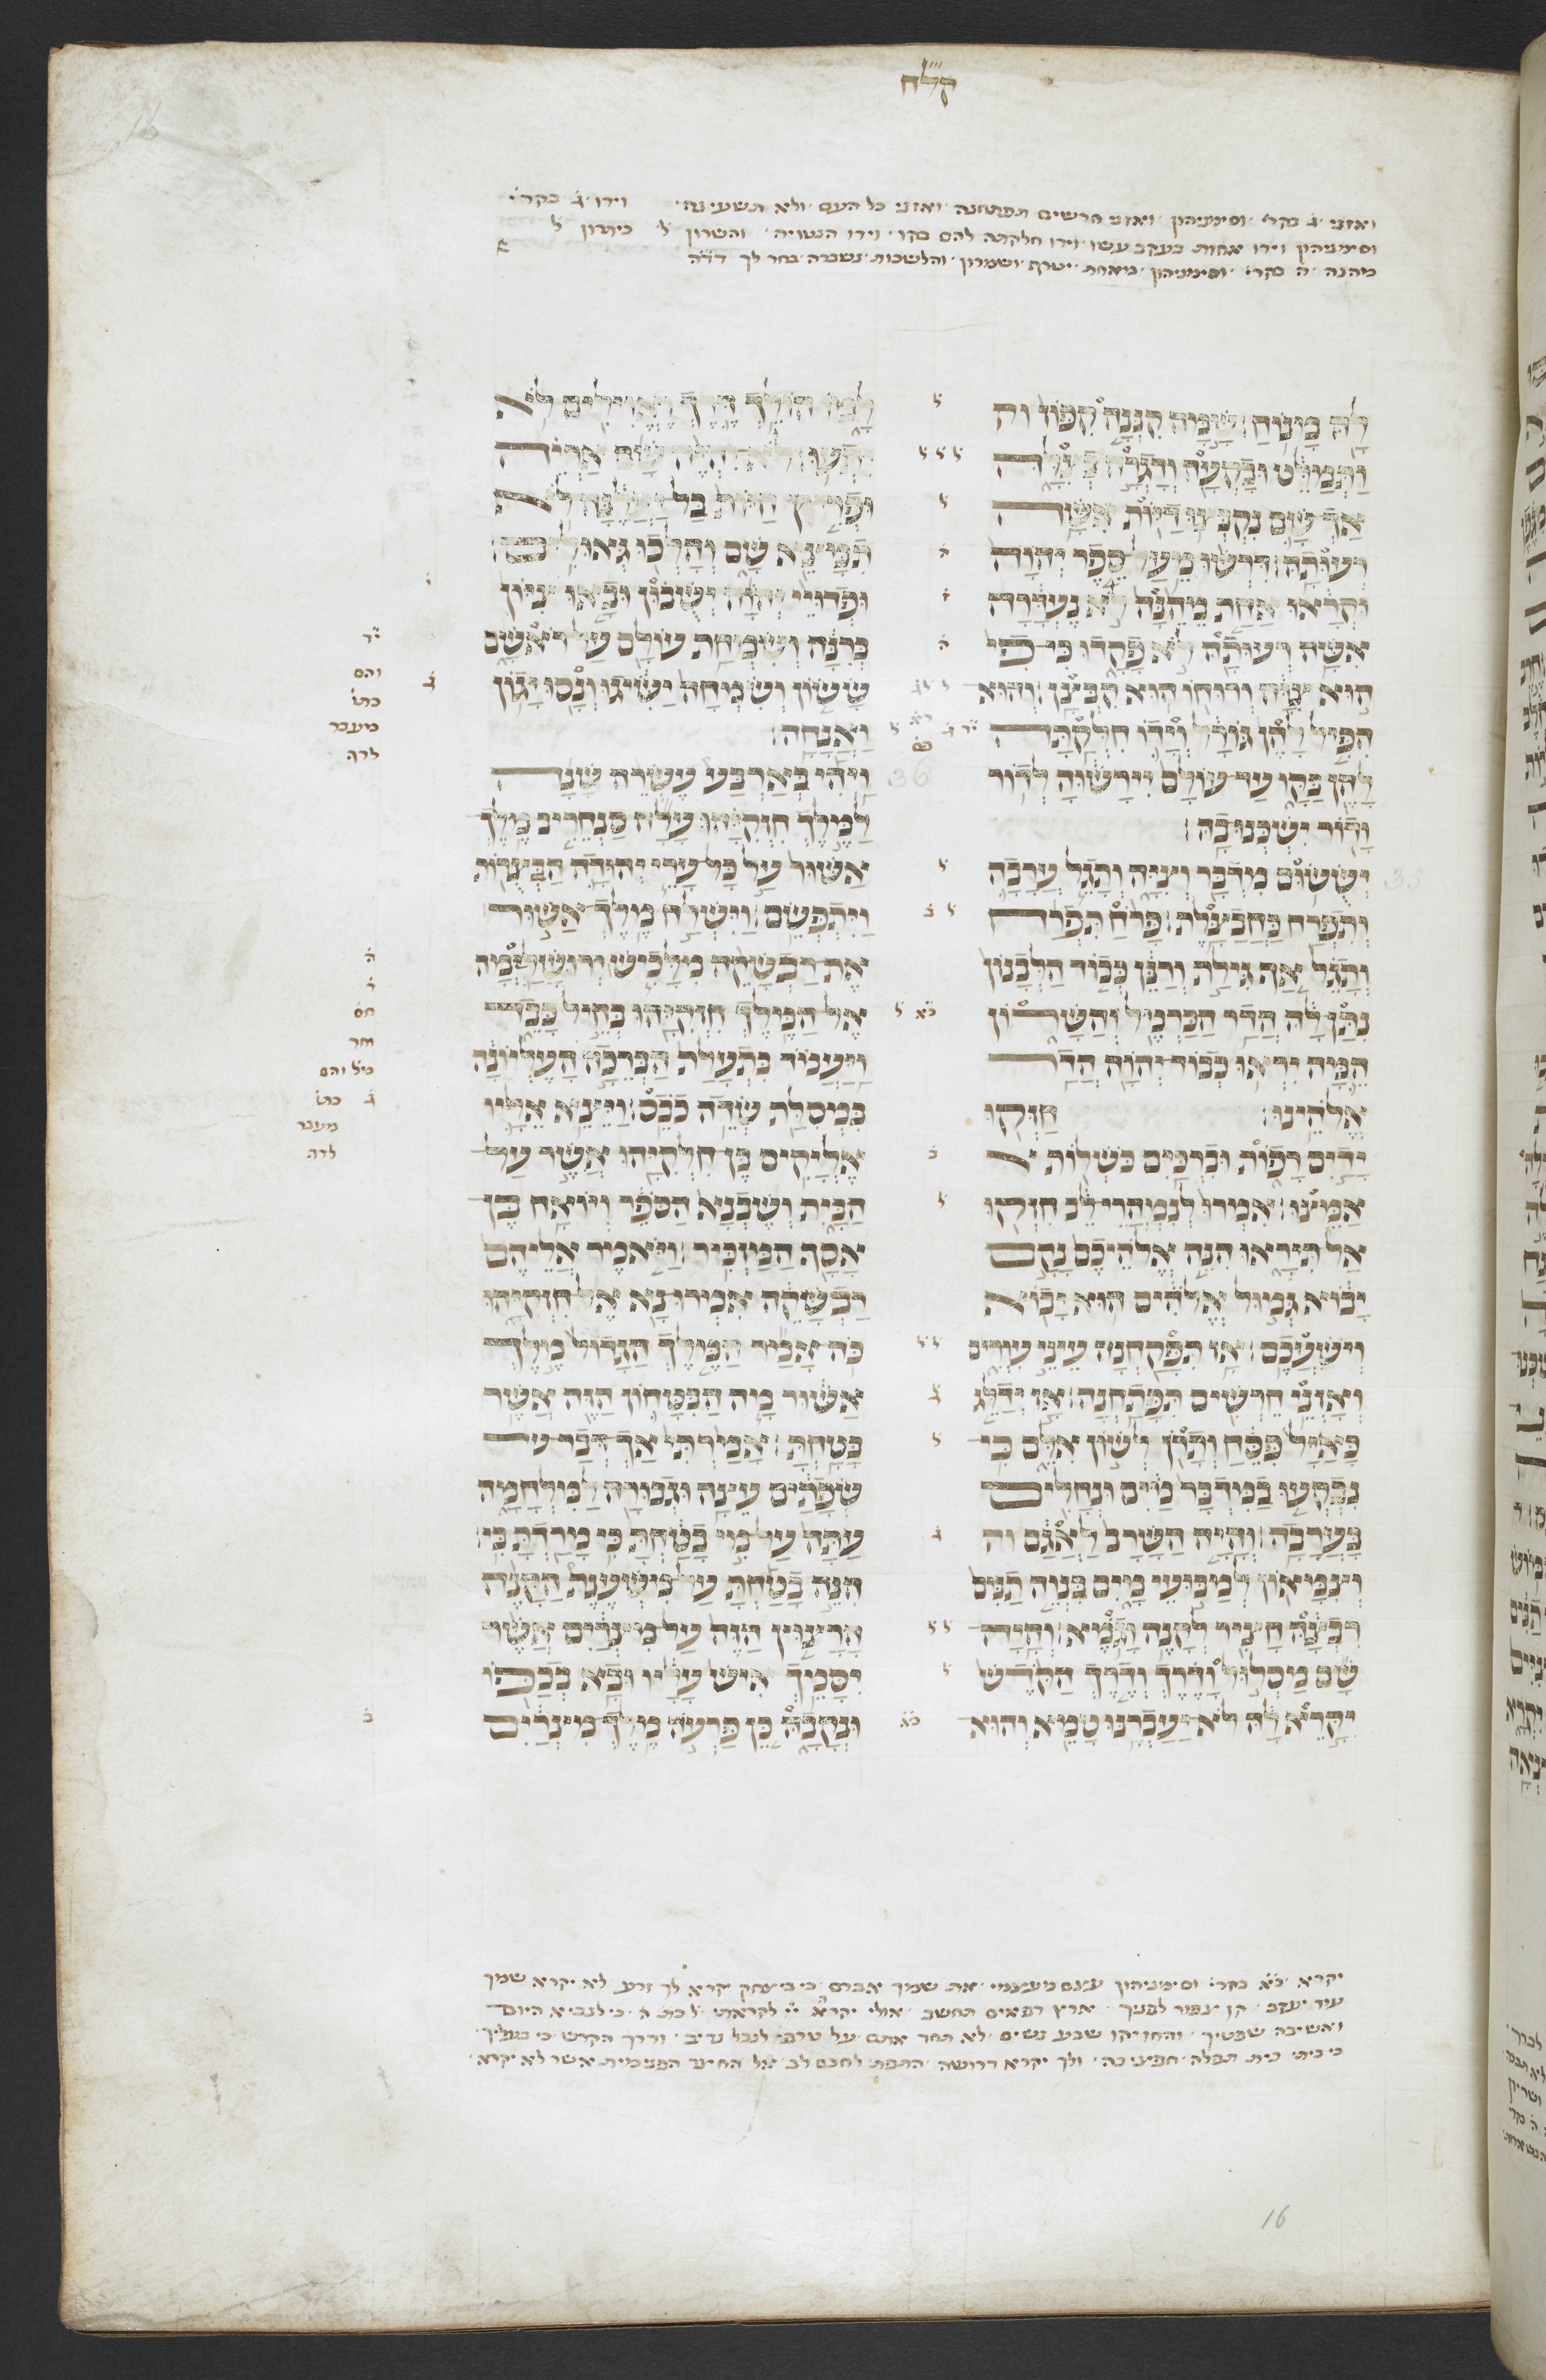 ק"לח
ואזני ג בקר׳ וסימניהון ואזני חרשים תפתחנה ואזני כל העם ולא תשעינה וידו ג בקר׳
וסימניהון וידו אחזת בעקב עשו וידו חלקתה להם בקו וידו הנטויה והשרון ל כיתרון ל
מהנה ה בקר׳ וסימניהון
לה מנוח׃ שמה קננה קפוז וה
ותמלט ובקעה ודגרה בצלה
אך שם נקבצו דיות אשה
רעותה׃ דרשו מעל ספר יהוה
וקראו אחת מהנה לא נעדרה
אשה רעותה לא פקדו כי פי
הוא צוה ורוחו הוא קבצן׃ והוא
הפיל להן גורל וידו חלקתה
להן בקו עד עולם יירשוה לדור
ודור ישכנו בה׃
35
יששום מדבר וציה ותגל ערבה
ותפרח כחבצלת׃ פרח תפרח
ותגל אף גילת ורנן כבוד הלבנון
נתן לה הדר הכרמל והשרון
המה יראו כבוד יהוה הדר
אלהינו׃ חזקו
ידים רפות וברכים כשלות א
אמצו׃ אמרו לנמהרי לב חזקו
אל תיראו הנה אלהיכם נקם
יבוא גמול אלהים הוא יבוא
וישעכם׃ אז תפקחנה עיני עורים
ואזני חרשים תפתחנה׃ אז ידלג
כאיל פסח ותרן לשון אלם כי
נבקעו במדבר מים ונחלים
בערבה׃ והיה השרב לאגם וה
וצמאון למבועי מים בנוה תנים
רבצה חציר לקנה וגמא׃ והיה
שם מסלול ודרך ודרך הקדש
יקרא לה לא יעברנו טמא והוא
למו הולך דרך ואוילים לא
יתעו׃ לא יהיה שם אריה
ופריץ חיות בל יעלנה לא
תמצא שם והלכו גאולים׃
ופדויי יהוה ישובון ובאו ציון
ברנה ושמחת עולם על ראשם
ששון ושמחה ישיגו ונסו יגון
ואנחה׃
36
ויהי בארבע עשרה שנה
למלך חזקיהו עלה סנחריב מלך
אשור על כל ערי יהודה הבצרות
ויתפשם׃ וישלח מלך אשור
את רבשקה מלכיש ירושלמה
אל המלך חזקיהו בחיל כבד
ויעמוד בתעלת הברכה העליונה
במסלת שדה כבס׃ ויצא אליו
אליקים בן חלקיהו אשר על
הבית ושבנא הספר ויואח בן
אסף המזכיר׃ ויאמר אליהם
רבשקה אמרו נא אל חזקיהו
כה אמר המלך הגדול מלך
אשור מה הבטחון הזה אשר
בטחת׃ אמרתי אך דבר
שפתים עצה וגבורה למלחמה
עתה על מי בטחת כי מרדת בי׃
הנה בטחת על משענת הקנה
הרצוץ הזה על מצרים אשר
יסמך איש עליו ובא בכפו
ונקבה כן פרעה מלך מצרים
והם
כתו
מעבר
לדף
והם
כתו
מעבר
לדף
יקרא כא בקר׳ וסימניהון עצם מעצמי את שמך אברם כי ביצחק יקרא לך זרע לא יקרא שמך
עוד יעקב קן צפור לפניך ארץ רפאים תחשב אולי יקרא לקראתי כי לנביא היום
ואשיבה שפטיך והחזיקו שבע נשים לא תחד אתם לנבל נדיב ודרך הקדש
כי ביתי בית תפלה חפצי בה ולך יקרא דרושה לחכם לב אל החצר הפנימית אשר לא יקרא
16